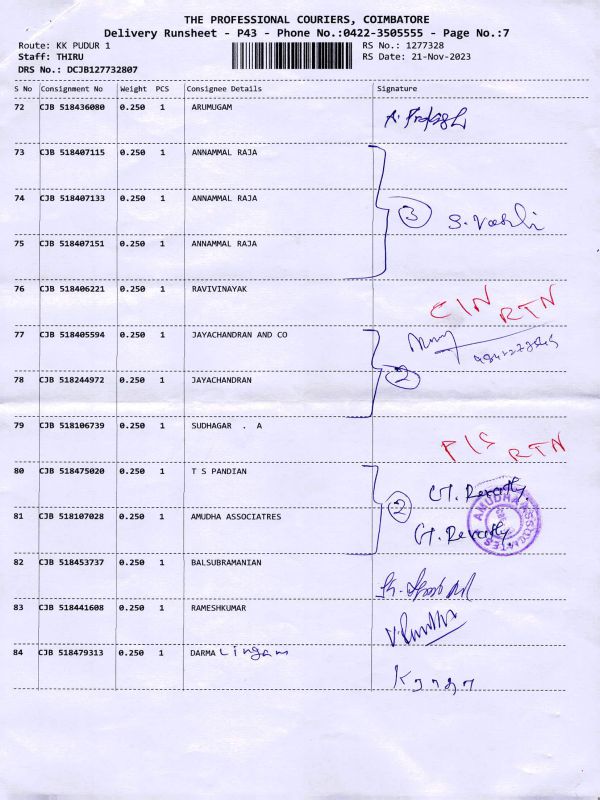 THE PROFESSIONAL COURIERS, COIMBATORE
Delivery Runsheet - P43 - Phone No.:0422-3505555 - Page No.:7
Route: KK PUDUR 1 RS No.: 1277328
Staff: THIRU RS Date: 21-Nov-2023
DRS No.: DCJB127732807
S No Consignment No Weight PCS Consignee Details Signature
72 CJB 518436080 0.250 1 ARUMUGAM
73 CJB 518407115 0.250 1 ANNAMMAL RAJA
74 CJB 518407133 0.250 1 ANNAMMAL RAJA 3
75 CJB 518407151 0.250 1 ANNAMMAL RAJA
76 CJB 518406221 0.250 1 RAVIVINAYAK CIN RTN
77 CJB 518405594 0.250 1 JAYACHANDRAN AND CO
78 CJB 518244972 0.250 1 JAYACHANDRAN 2
79 CJB 518106739 0.250 1 SUDHAGAR . A PIS RTN
80 CJB 518475020 0.250 1 T S PANDIAN G. Revathy.
81 CJB 518107028 0.250 1 AMUDHA ASSOCIATRES 2 G. Revathy. AMUDHA ASSOCIATES
82 CJB 518453737 0.250 1 BALSUBRAMANIAN
83 CJB 518441608 0.250 1 RAMESHKUMAR
84 CJB 518479313 0.250 1 DARMA Lingam